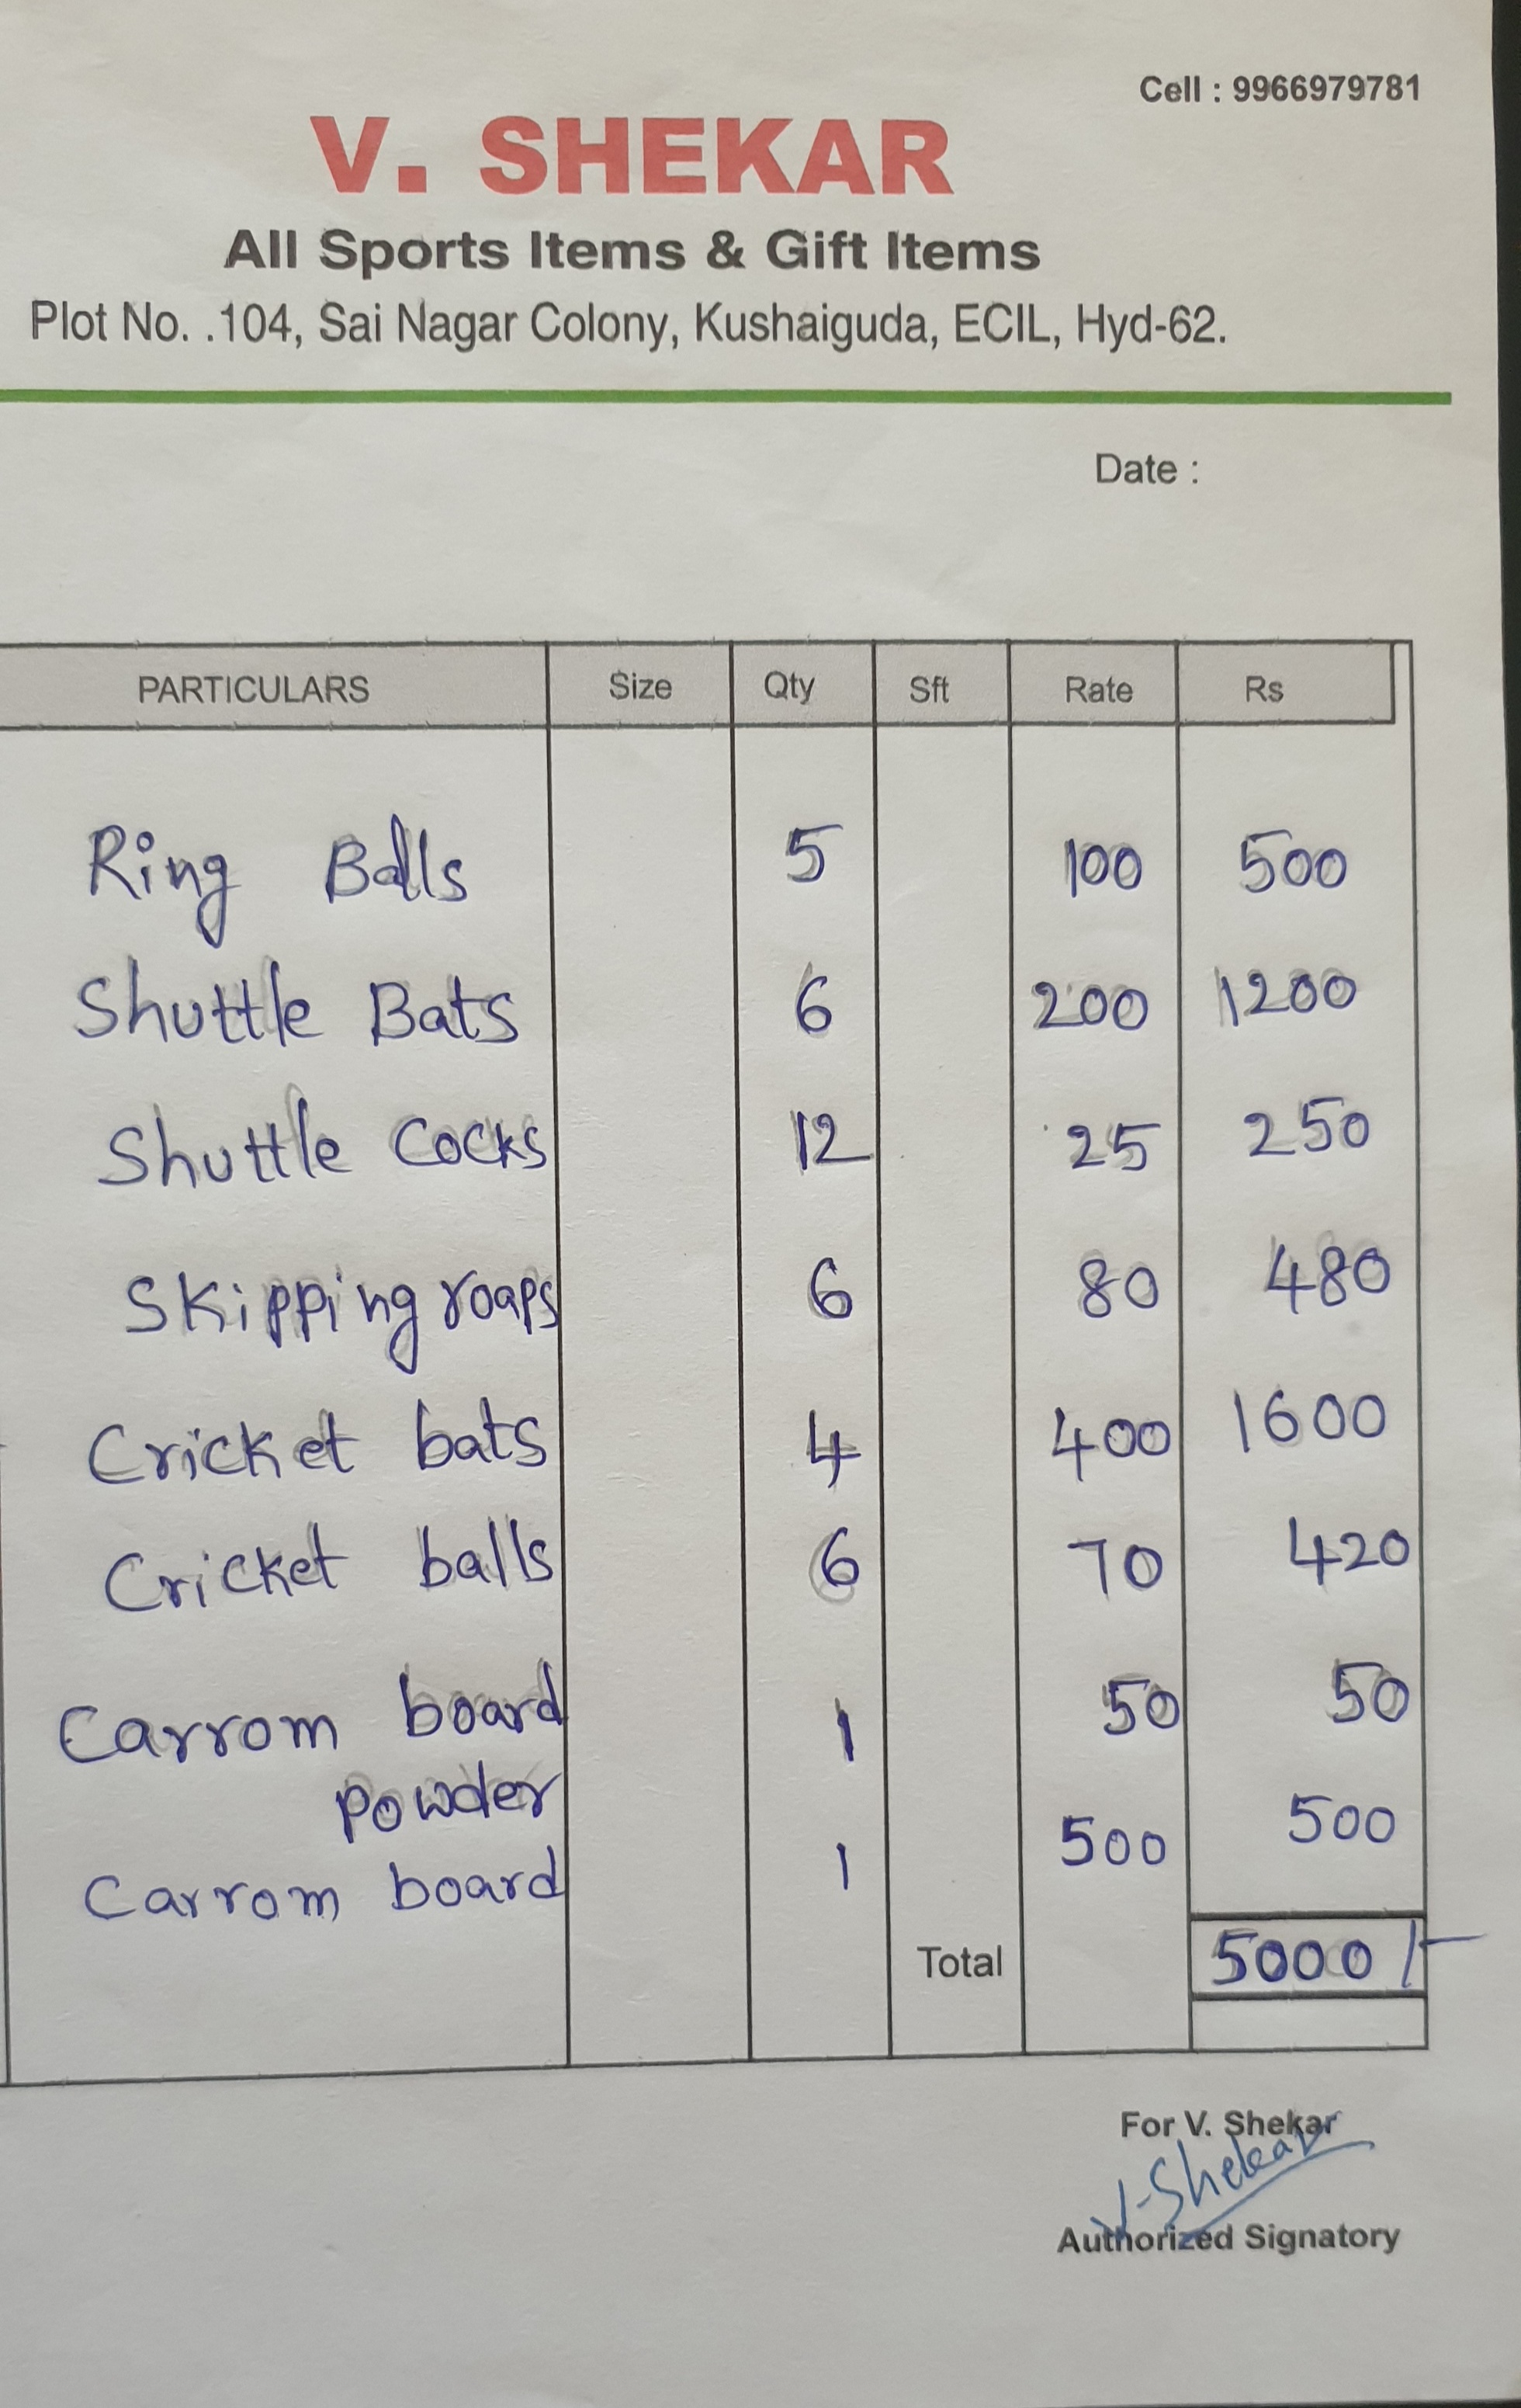 Cell : 9966979781
V. SHEKAR
All Sports Items & Gift Items
Plot No. .104, Sai Nagar Colony, Kushaiguda, ECIL, Hyd-62.
Date :
PARTICULARS Size Qty Sft Rate Rs
Ring Balls 5 100 500
Shuttle Bats 6 200 1200
Shuttle Cocks 12 25 250
Skipping roaps 6 80 480
Cricket bats 4 400 1600
Cricket balls 6 70 420
Carrom board 1 50 50
powder
Carrom board 1 500 500
Total 5000/-
For V. Shekar
V. Shekar
Authorized Signatory